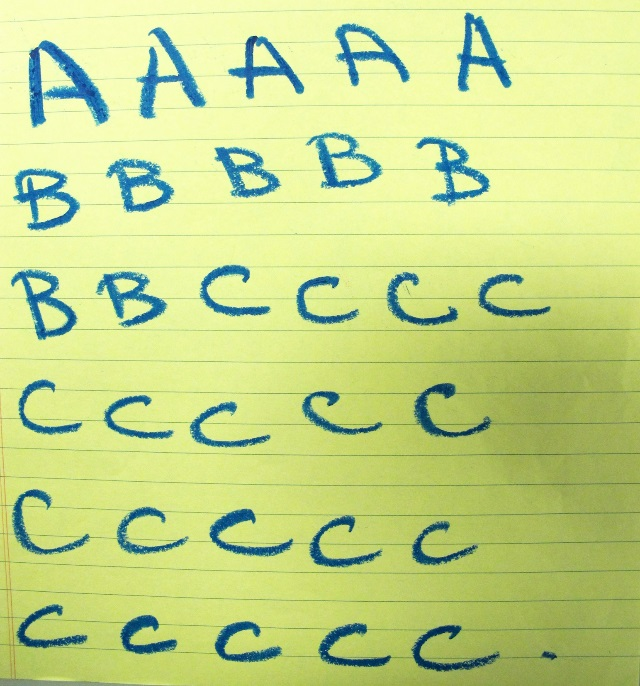 A A A A A
B B B B B
B B C C C C
C C C C C
C C C C C
C C C C C .